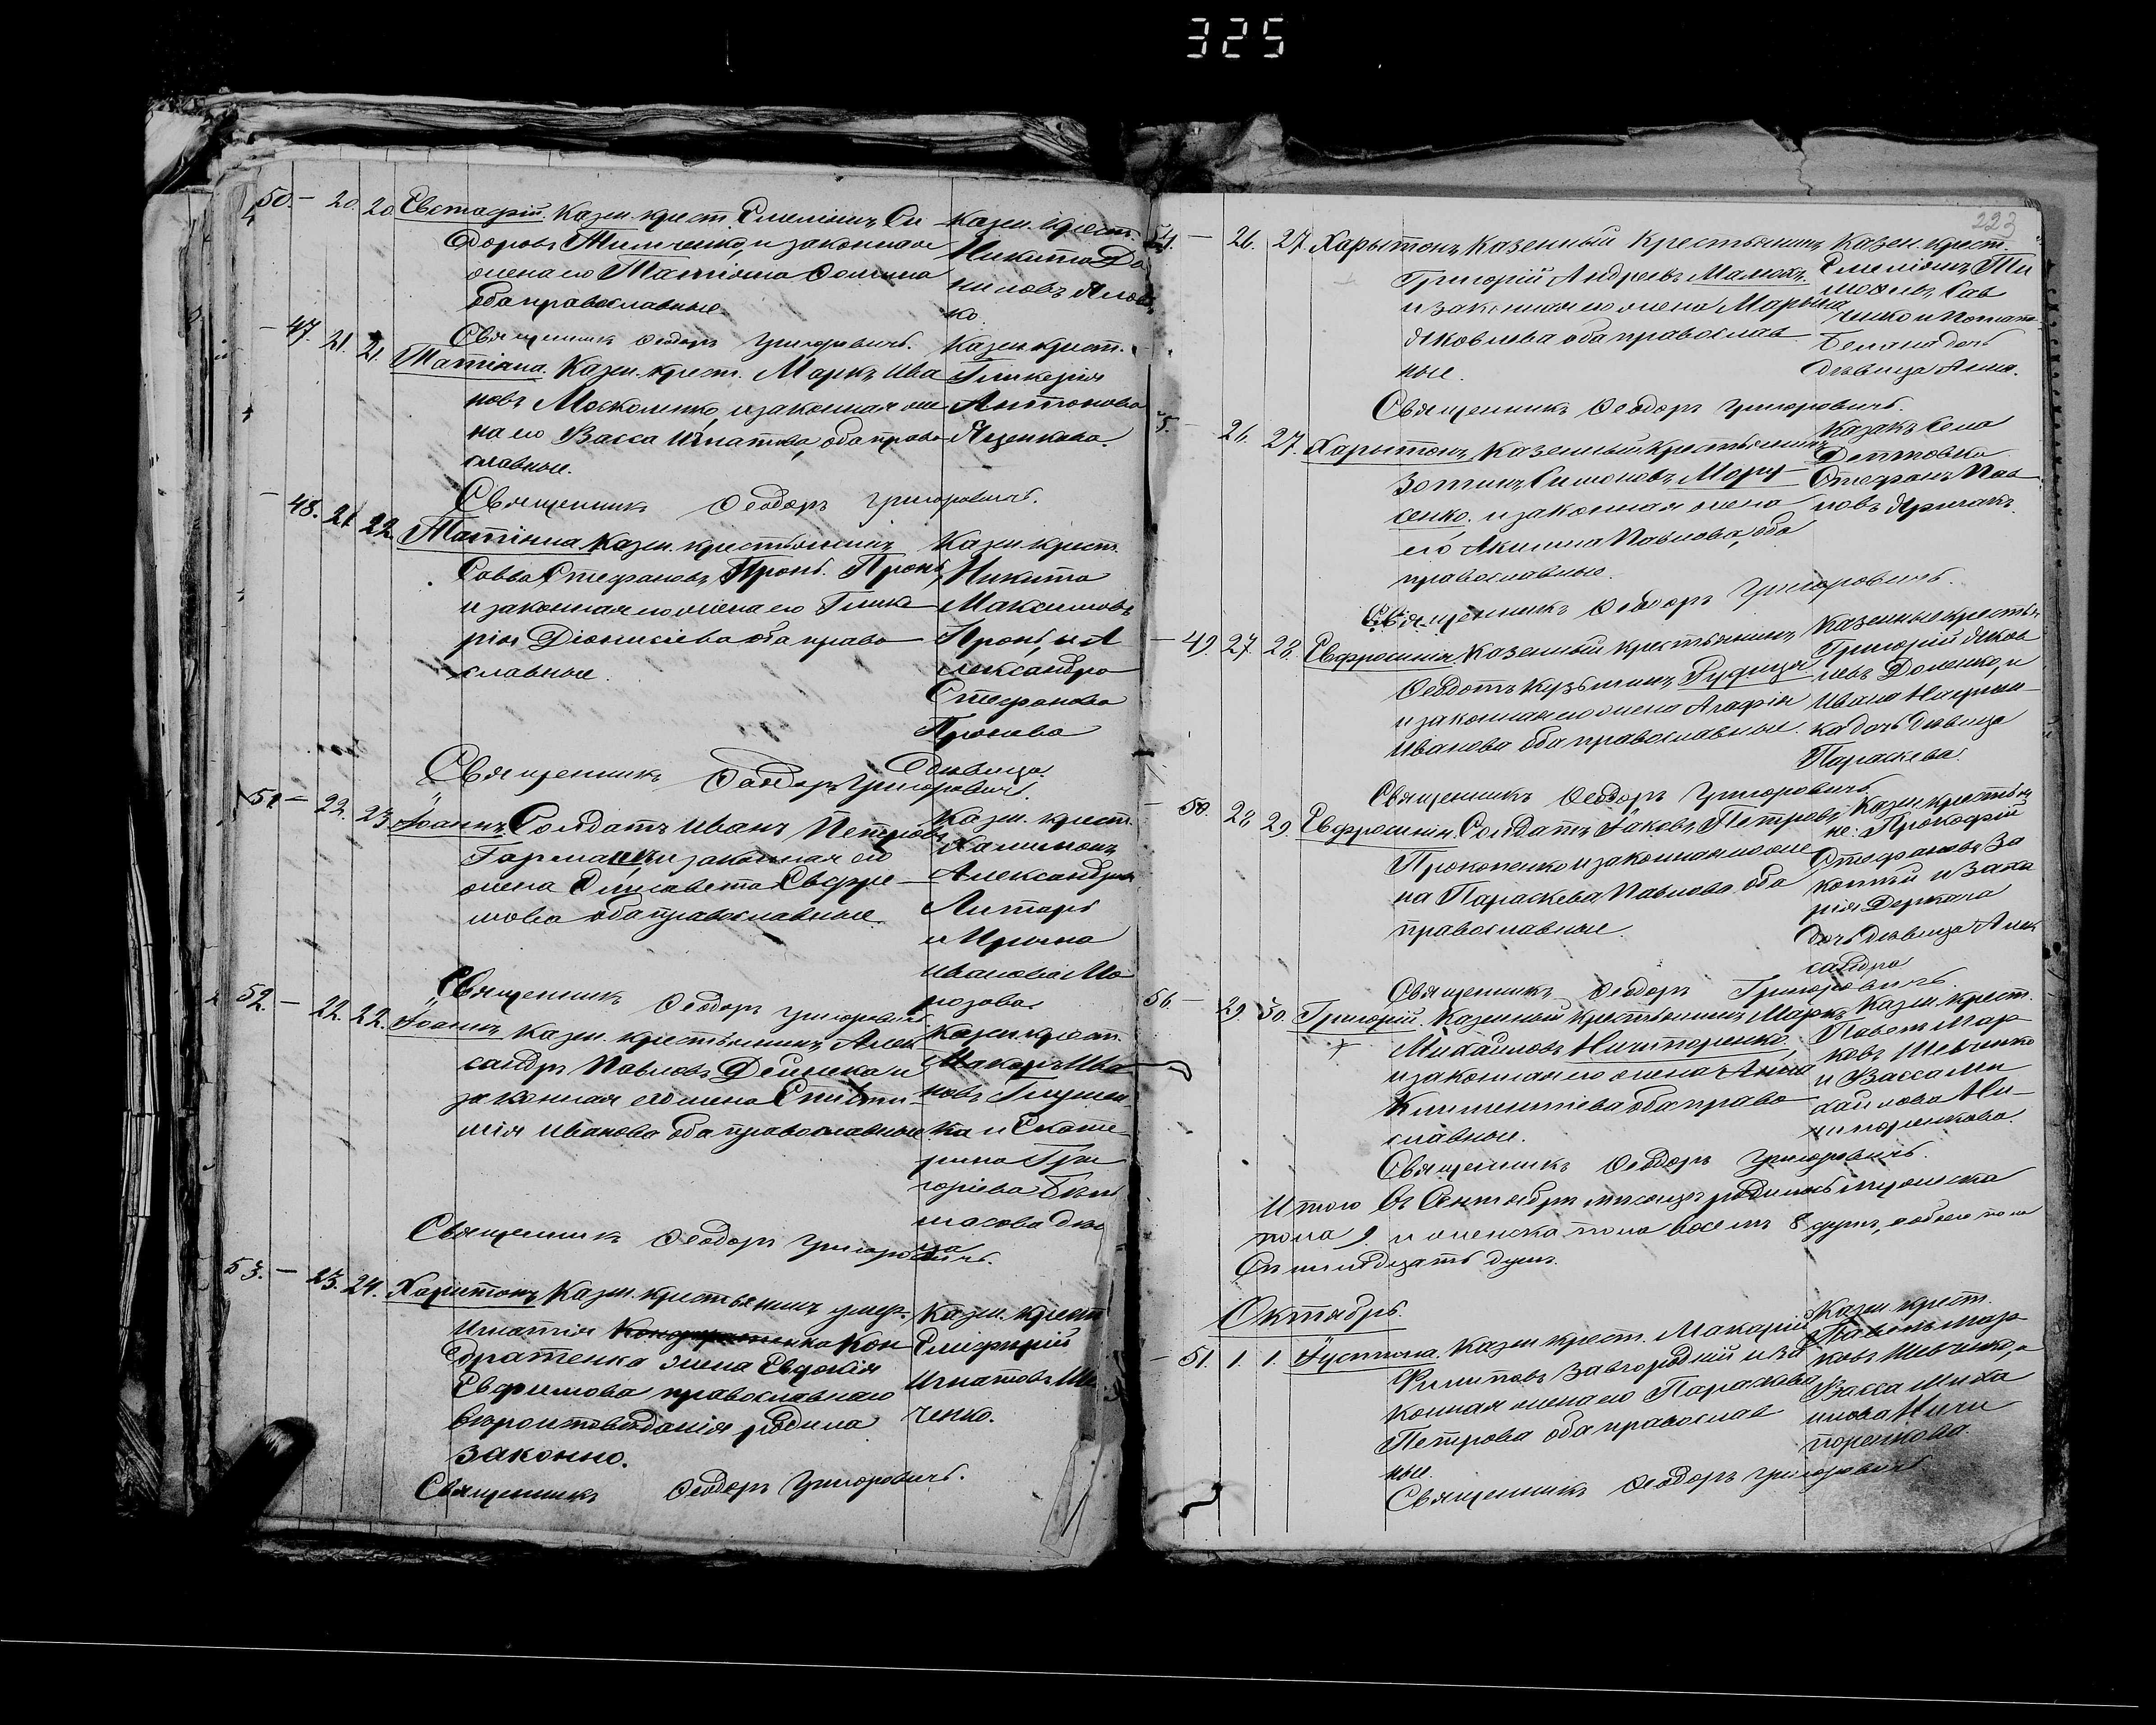 325
50. — 20. 20. Евстафій. Казен. крест. Емеліанъ Си
доровъ Тимченко, и законная
жена его Татіана Фомина
оба православные.
Казен. крест.
Никита Да
ниловъ Яков
ко.
Священникъ Ѳеодоръ Григоровичъ.
— 47. 21. 21. Татіана. Казен. крест. Маркъ Ива
новъ Москаленко, и законная же
на его Васса Игнатова, оба право
славные.
Казен. крест.
Гликерія
Антонова
Яценкова.
Священникъ Ѳеодоръ Григоровичъ.
— 48. 21. 22. Татіана Казен. крестьянинъ
Савва Стефановъ Пронь. Пронь,
и законная его жена его Глике
рія Діонисіева оба право
славные.
Казен. крест.
Никита
Максимовъ
Пронь, и А
лександра
Стефанова
Пронева
дѣвица.
Священникъ Ѳеодоръ Григоровичъ.
51. — 22. 23. Іоаннъ. Солдатъ Иванъ Петровъ
и законная его
жена Елисавета Евфре
мова оба православные.
Казен. крест.
Филимонъ
Александровъ
Литарь
и Ирина
Иванова Мо
розова.
Священникъ Ѳеодоръ Григоровичъ.
52. — 22. 22. Іоаннъ. Казен. крестьянинъ Алек
сандръ Павловъ Дейнека и
законная его жена Еписти
мія Иванова оба православные
Казен. крест.
Макаръ Ива
новъ Глушен
ка и Екате
рина Гри
горіева
дѣви
ца
Священникъ Ѳеодоръ Григоровичъ.
53. — 23. 24. Харитонъ. Казен. крестьянинъ умер.
Игнатія Кондратенко Кон
дратенка жена Евдокія
Евфимова православнаго
вѣроисповѣданія родила
законно.
Казен. крест.
Елевферій
Игнатовъ
ченко.
Священникъ Ѳеодоръ Григоровичъ.
223
54. — 26. 27. Харытонъ. Казенный крестьянинъ
Григорій Андреевъ Малюкъ.
и законная его жена Марына
Яковлева оба православ
ные.
Казен. крест.
Емеліанъ Ти
моѳеевъ Сав
ченко и Потапа
дочь
дѣвица Анна.
Священникъ Ѳеодоръ Григоровичъ.
5. — 26. 27. Харытонъ. Казенный крестьянинъ
Зотикъ Симоновъ Мору
сенко. и законная жена
его Акилина Павлова, оба
православные.
Казакъ села
Дептовки
Стефанъ Пав
ловъ Ярмакъ.
Священникъ Ѳеодоръ Григоровичъ.
— 49. 27. 28. Евфросинія. Казенный крестьянинъ
Ѳеодотъ Кузьминъ Гудиця
и законная его жена Агафія
Иванова оба православные.
Казенные крестья.
Григорій Яков
левъ Доленко, и
Ивана
ка дочь дѣвица
Параскева.
Священникъ Ѳеодоръ Григоровичъ.
— 50. 28. 29. Евфросинія. Солдатъ Іаковъ Петровъ
Прокопенко и законная его же
на Параскева Павлова. оба
православные.
Казен. крестья
не: Прокофій
Стефановъ За
копный и Заха
рія Деркача
дочь дѣвица Алек
сандра
Священникъ Ѳеодоръ Григоровичъ.
56. — 29. 30. Григорій. Казенный крестьянинъ Маркъ
Михайловъ Ничипоренко,
и законная его жена Анна
Климентіева оба право
славные.
Казен. крест.
Павелъ Мар
ковъ Шевченко
и Васса Ми
хайлова Ни
чипоренкова.
Священникъ Ѳеодоръ Григоровичъ.
Итого въ Сентябрѣ мѣсяцѣ родилось мужеска
пола 9. и женска пола восемь 8 душъ, а обоего пола
семнадцать душъ.
Октябрь.
— 51. 1. 1. Іустина. Казен. крест. Макарій
Филиповъ Завгородній и за
конная жена его Параскева
Петрова оба православ
ные.
Казен. крест.
Павелъ Мар
ковъ Шевченко, и
Васса Миха
илова Ничи
поренкова.
Священникъ Ѳеодоръ Григоровичъ